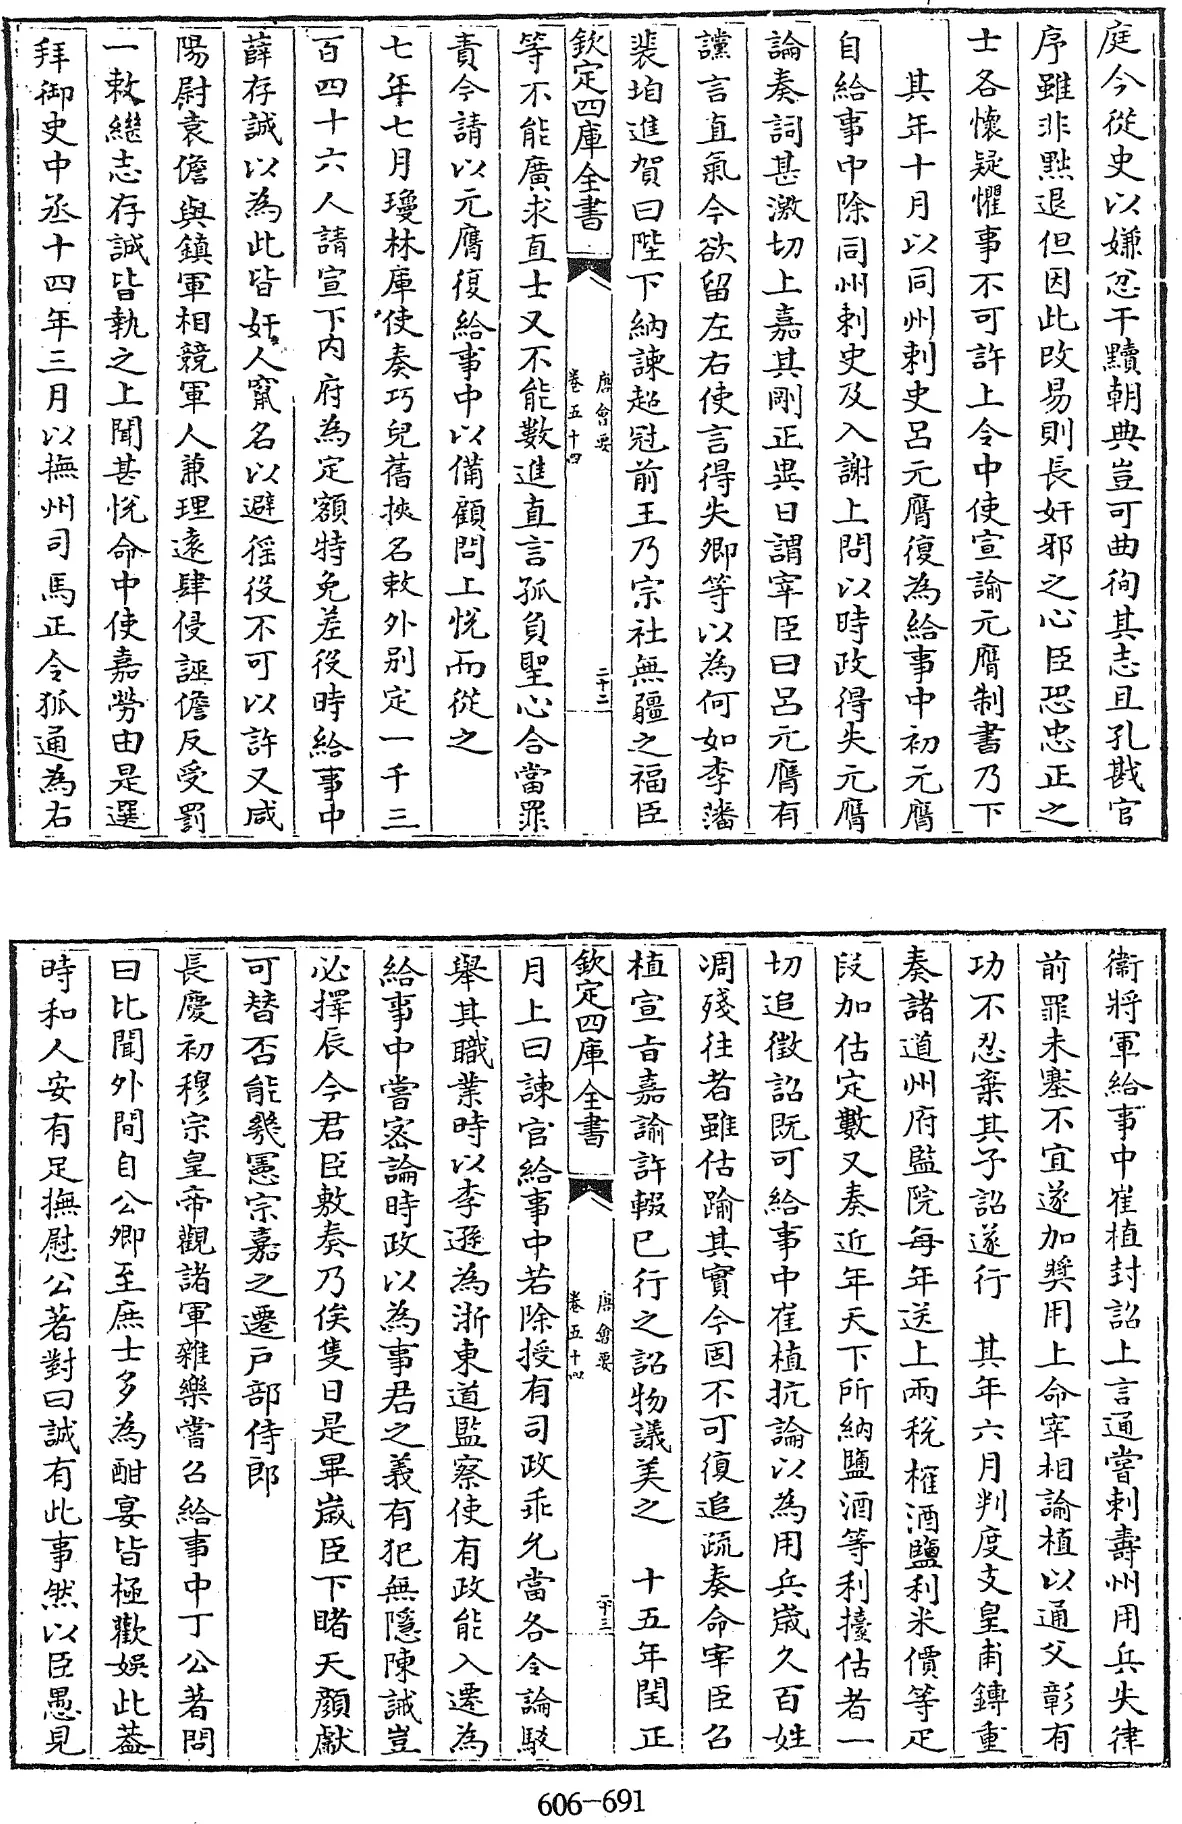 庭今從史以嫌忿干黷朝典豈可曲徇其志且孔戡官
序雖非黜退但因此改易則長奸邪之心臣恐忠正之
士各懷疑懼事不可許上令中使宣諭元膺制書乃下
其年十月以同州刺史呂元膺復為給事中初元膺
自給事中除同州刺史及入謝上問以時政得失元膺
論奏詞甚激切上嘉其剛正異日謂宰臣曰呂元膺有
讜言直氣今欲留左右使言得失卿等以為何如李藩
裴垍進賀曰陛下納諫超冠前王乃宗社無疆之福臣
欽定四庫全書
唐會要
卷五十四
二十二
等不能廣求直士又不能數進直言孤負聖心合當罪
責今請以元膺復給事中以備顧問上悅而從之
七年七月瓊林庫使奏巧兒舊挾名敕外别定一千三
百四十六人請宣下内府為定額特免差役時給事中
薛存誠以為此皆奸人竄名以避徭役不可以許又咸
陽尉袁儋與鎮軍相競軍人兼理遠肆侵誣儋反受罰
一敕繼志存誠皆執之上聞甚悅命中使嘉勞由是選
拜御史中丞十四年三月以撫州司馬正令狐通為右
衞將軍給事中崔植封詔上言通嘗刺壽州用兵失律
前罪未塞不宜遂加奬用上命宰相諭植以通父彰有
功不忍棄其子詔遂行　其年六月判度支皇甫鏄重
奏諸道州府監院每年送上兩稅榷酒鹽利米價等疋
段加估定數又奏近年天下所納鹽酒等利擡估者一
切追徵詔既可給事中崔植抗論以為用兵歲久百姓
凋殘往者雖估踰其實今固不可復追疏奏命宰臣召
植宣旨嘉諭許輟已行之詔物議美之　十五年閏正
欽定四庫全書
唐會要
卷五十四
二十三
月上曰諫官給事中若除授有司政乖允當各令論駁
舉其職業時以李遜為浙東道監察使有政能入遷為
給事中嘗密論時政以為事君之義有犯無隱陳誡豈
必擇辰今君臣敷奏乃俟隻日是畢歲臣下睹天顏獻
可替否能幾憲宗嘉之遷戸部侍郎
長慶初穆宗皇帝觀諸軍雜樂嘗召給事中丁公著問
曰比聞外間自公卿至庶士多為酣宴皆極歡娯此葢
時和人安有足撫慰公著對曰誠有此事然以臣愚見
606-691